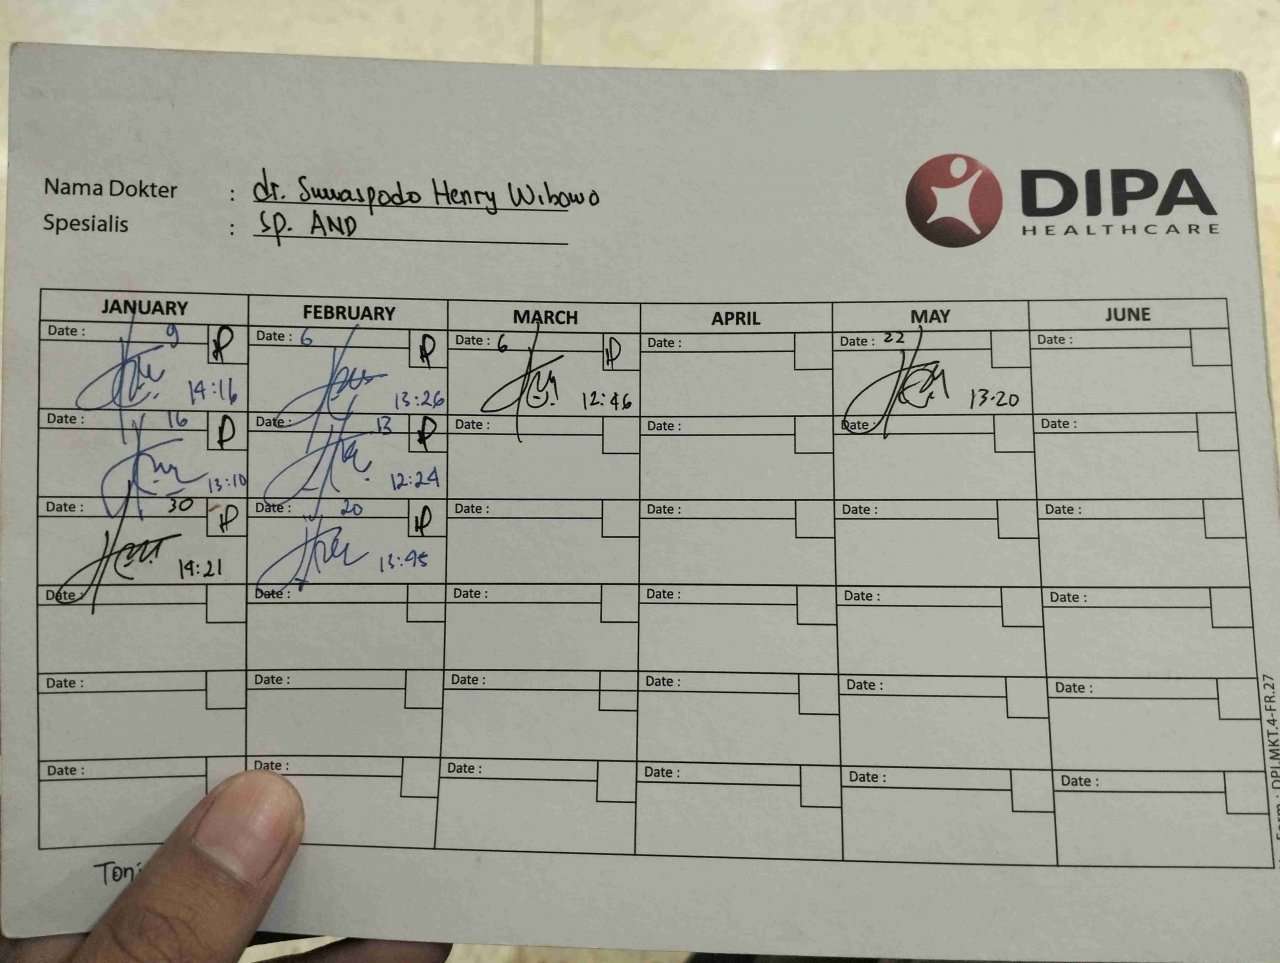 Nama Dokter : dr. Suwaspodo Henry Wibowo
Spesialis : Sp. AND
DIPA
HEALTHCARE
JANUARY FEBRUARY MARCH APRIL MAY JUNE
Date : 9 Date : 6 Date : 6 Date : Date : 22 Date :
14:16 13:26 12:46 13.20
Date : 16 Date : 13 Date : Date : Date : Date :
13:10 12:24
Date : 30 Date : 20 Date : Date : Date : Date :
14:21 13:45
Date : Date : Date : Date : Date : Date :
Date : Date : Date : Date : Date : Date :
Date : Date : Date : Date : Date : Date :
Toni
Form : DPI.MKT.4-FR.27